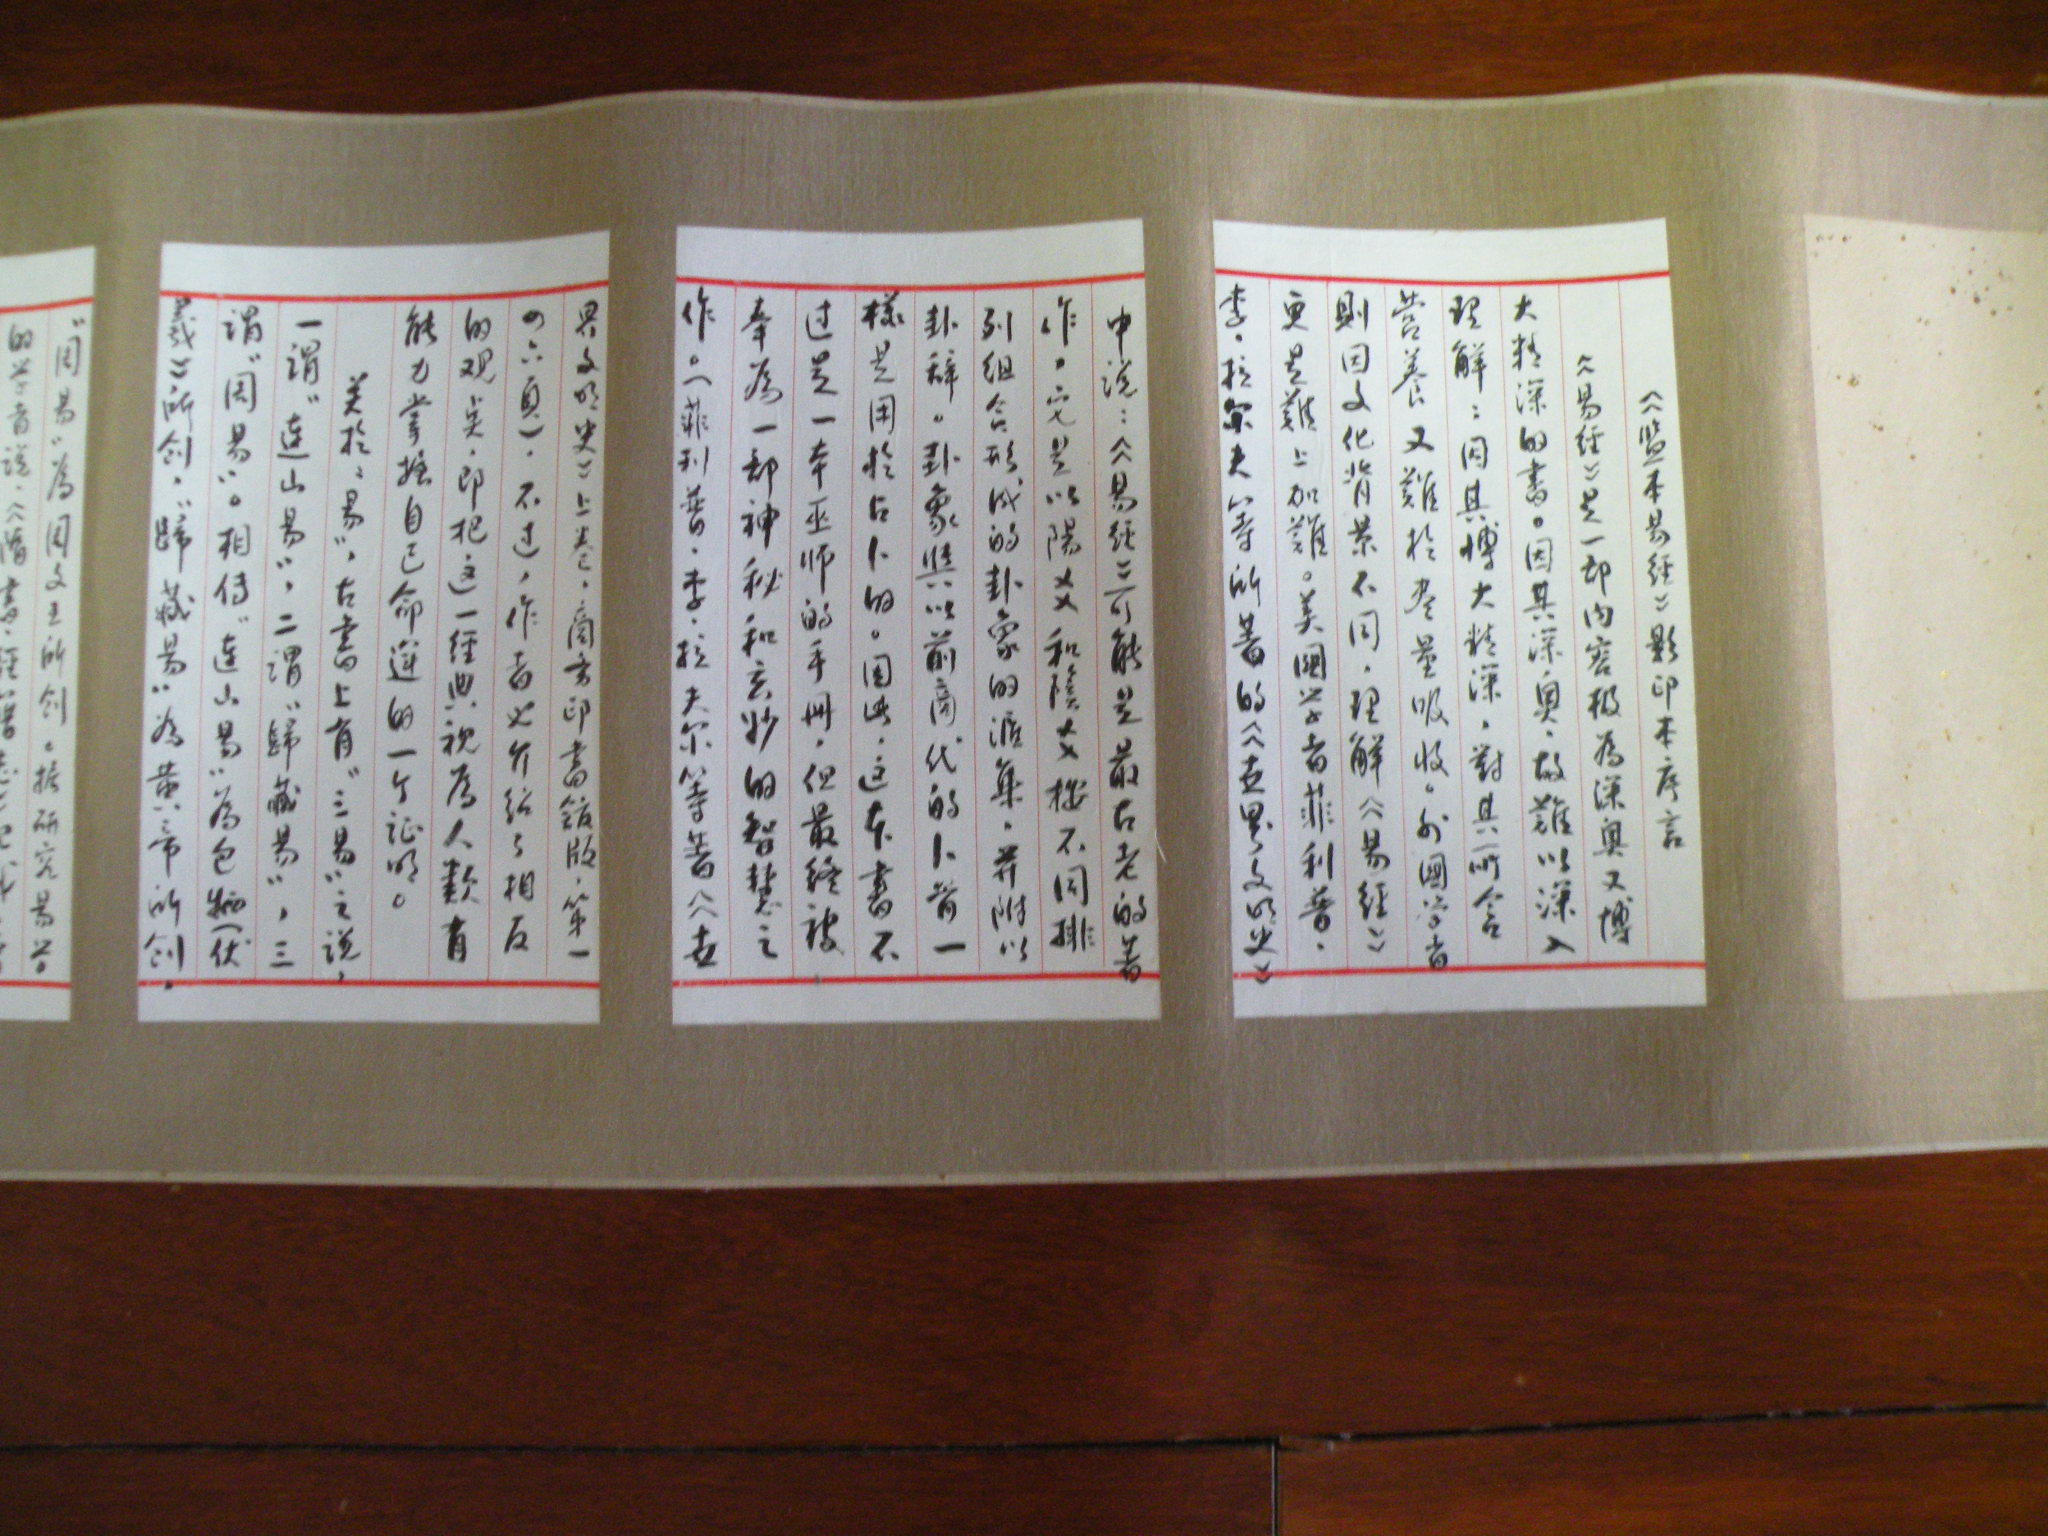 《监本易經》影印本序言
《易經》是一部内容极為深奥又博
大精深的書。因其深奥，故難以深入
理解；因其博大精深，對其所含
营养又難於尽量吸收。外國学者
則因文化背景不同，理解《易經》
更是難上加難。美國学者菲利普·
李·拉尔夫等所著的《世界文明史》
中说：《易經》可能是最古老的著
作。它是以陽爻和陰爻按不同排
列组合形成的卦象的滙集，并附以
卦辞。卦象與以前商代的卜骨一
樣是用於占卜的。因此，这本書不
过是一本巫师的手冊，但最终被
奉為一部神秘和玄妙的智慧之
作。（菲利普·李·拉夫尔等著《世
界文明史》上卷，商务印書馆版，第一
四六頁）。不过，作者也介绍了相反
的观点，即把这一經典視為人類有
能力掌握自己命運的一个证明。
关於“易”，古書上有“三易”之说，
一謂“連山易”，二謂“歸藏易”，三
謂“周易”。相传“連山易”為包犧（伏
羲）所创，“歸藏易”為黄帝所创，
“周易”為周文王所创。据研究易学
的学者说，《隋書·經籍志》